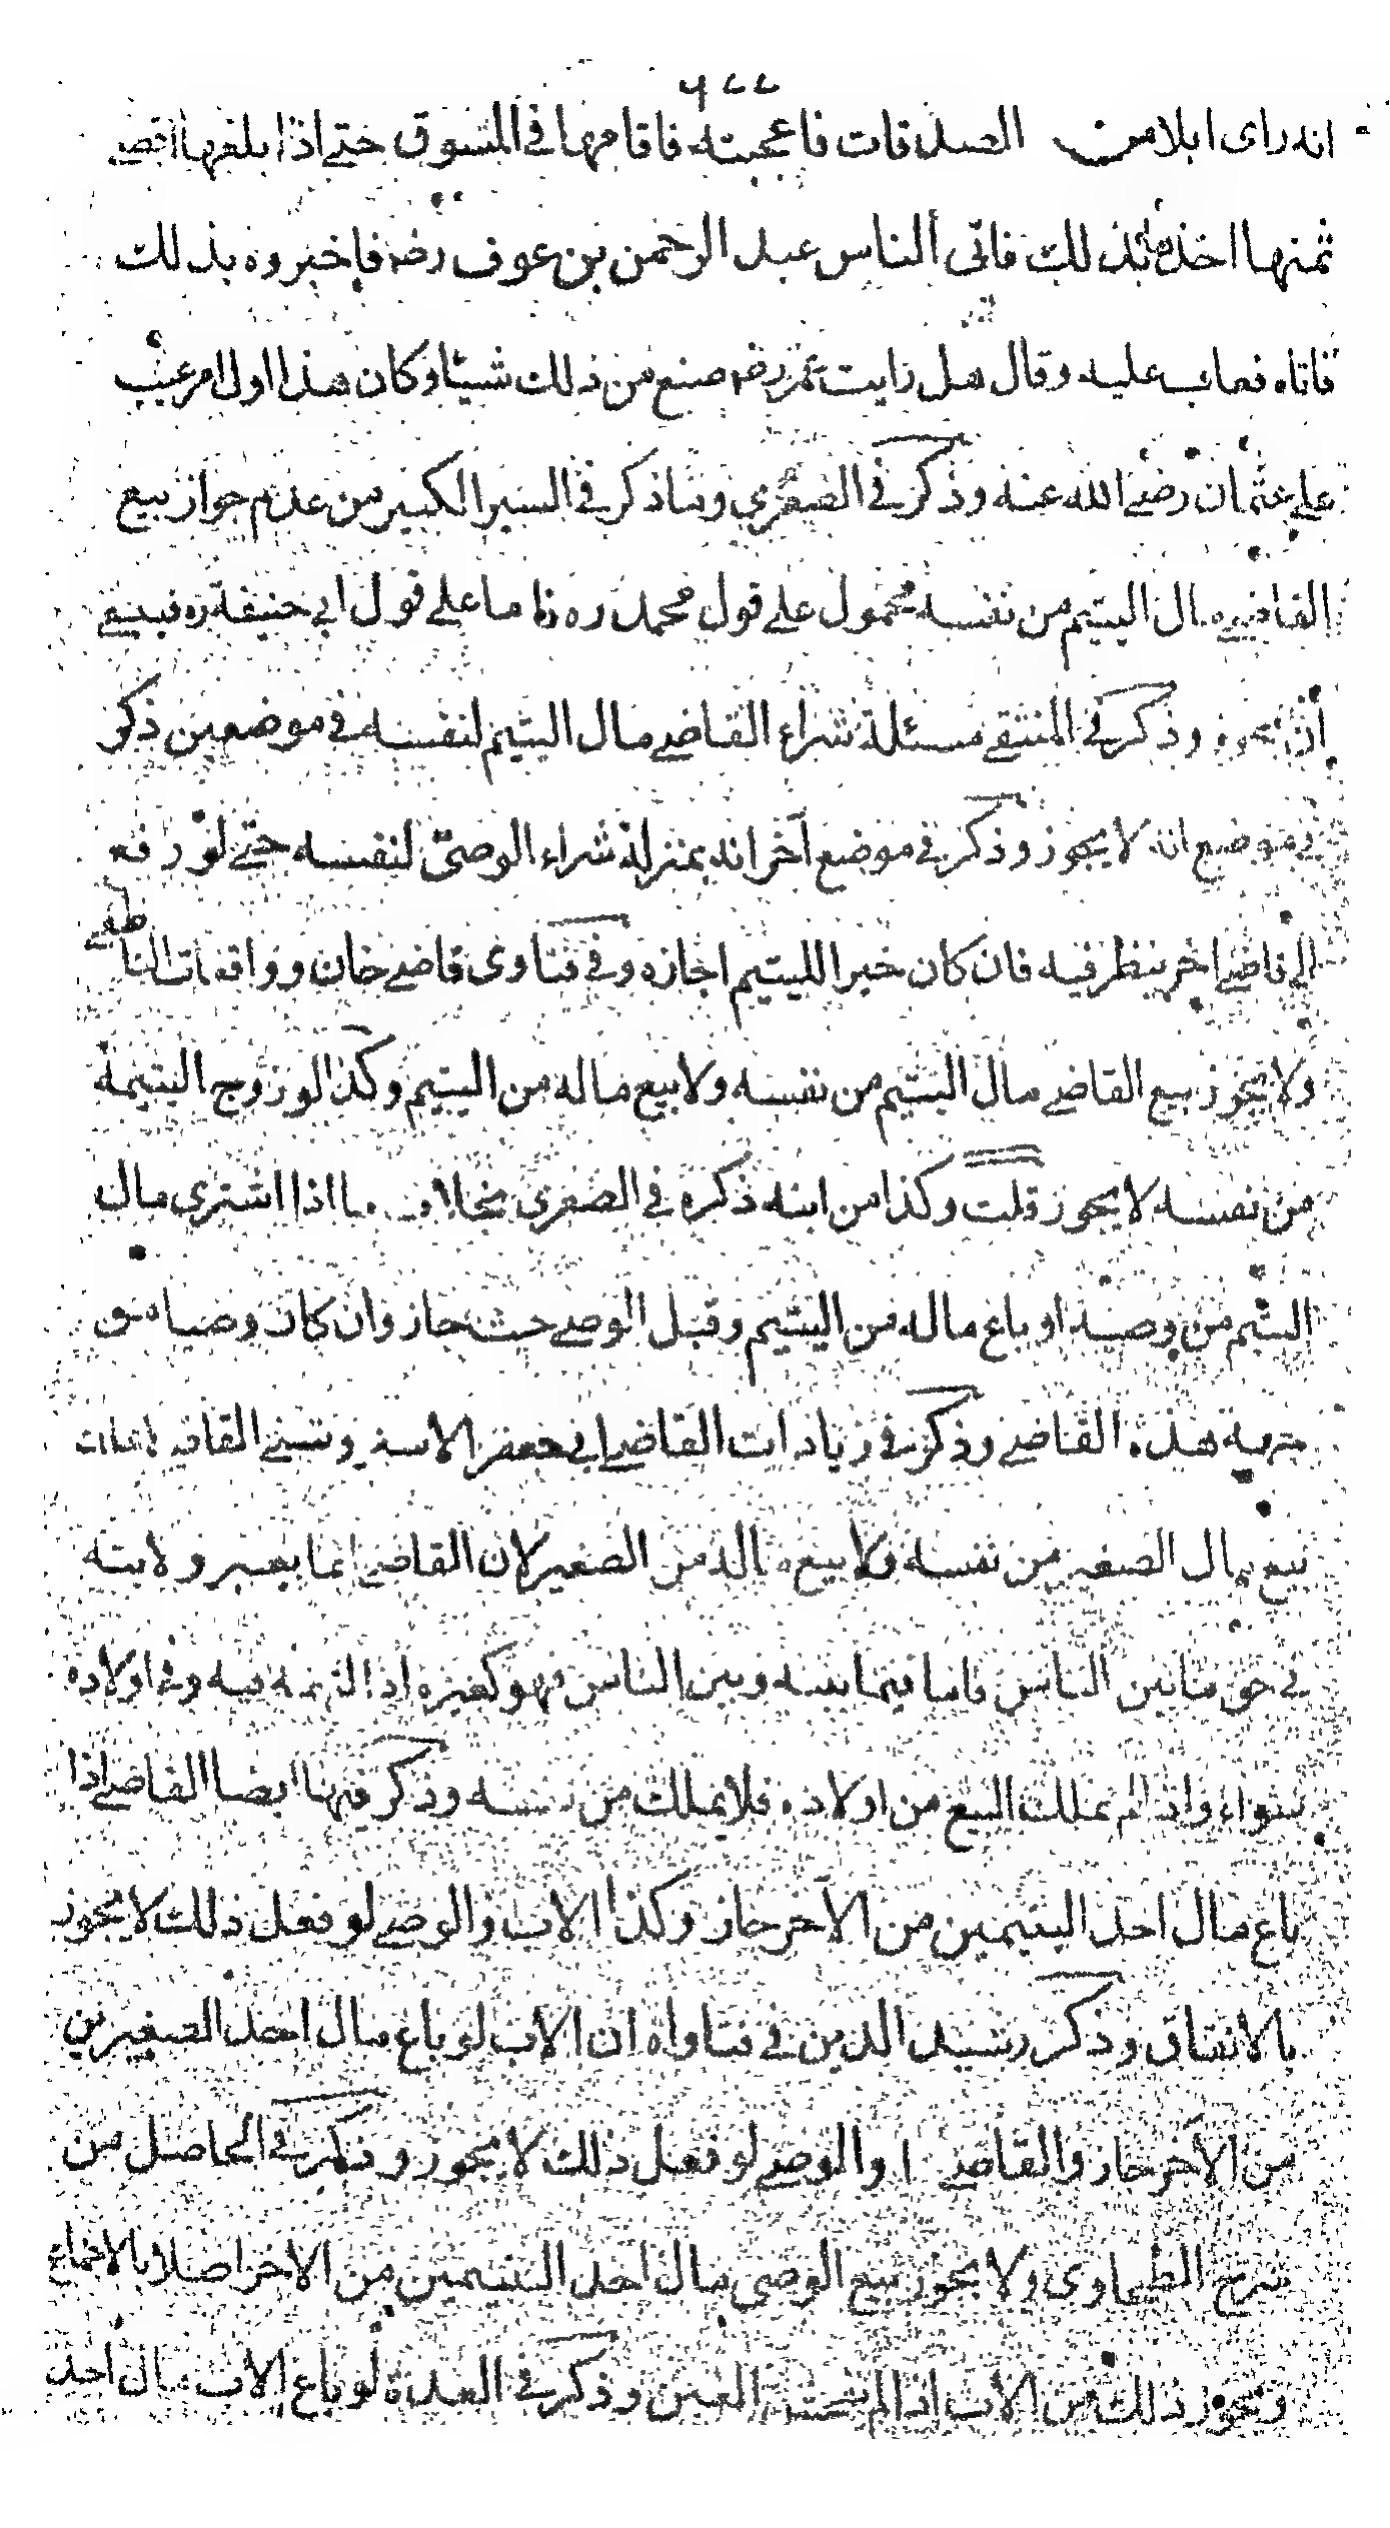 انه راى ابلا من الصدقات فاعجبته فاقامها في السوق حتى اذا بلغها اقصى
ثمنها اخذ بذلك فاتى الناس عبد الرحمن بن عوف رضه فاخبروه بذلك
فاتاه فعاب عليه وقال هل رايت عمر رضه صنع من ذلك شيئا وكان هذا اول امر عيب
على عثمان رضى الله عنه وذكر في الصغرى وما ذكر في السير الكبير من عدم جواز بيع
القاضى مال اليتيم من نفسه محمول على قول محمد ره اما على قول ابي حنيفة ره فينبغى
ان يجوز وذكر في المنتقى مسئلة شراء القاضى مال اليتيم لنفسه في موضعين ذكر
في موضع انه لا يجوز وذكر في موضع آخر انه بمنزلة شراء الوصىّ لنفسه حتى لو رفع
الى قاضى اخر ينظر فيه فان كان خيرا لليتيم اجازه وفي فتاوى قاضى خان وواقعات الناطفى
ولا يجوز بيع القاضى مال اليتيم من نفسه ولا بيع ماله من اليتيم وكذا لو زوج اليتيمة
من نفسه لا يجوز قلت وكذا من ابنه ذكره في الصغرى بخلاف ما اذا اشترى مال
اليتيم من وصيه او باع ماله من اليتيم وقبل الوصى حيث جاز وان كان وصيا من
جهة هذه القاضى وذكر في زيادات القاضى ابي جعفر القاضى لا يملك
بيع مال الصغير من نفسه ولا بيع ماله من الصغير لان القاضى انما يعتبر ولايته
في حق ما بين الناس فاما فيما بينه وبين الناس فهو كغيره اذ التهمة فيه وفي اولاده
سواء واذ لم يملك البيع من اولاده فلا يملك من نفسه وذكر فيها ايضا القاضى اذا
باع مال احد اليتيمين من الآخر جاز وكذا الاب والوصى لو فعل ذلك لا يجوز
بالاتفاق وذكر رشيد الدين في فتاواه ان الاب لو باع مال احد الصغيرين
من الآخر جاز والقاضى والوصى لو فعل ذلك لا يجوز وذكر في الحاصل من
شرح الطحاوى ولا يجوز بيع الوصى مال احد اليتيمين من الاخر اصلا بالاجماع
ويجوز ذلك من الاب اذا لم الغبن وذكر في العدة لو باع الاب مال احد